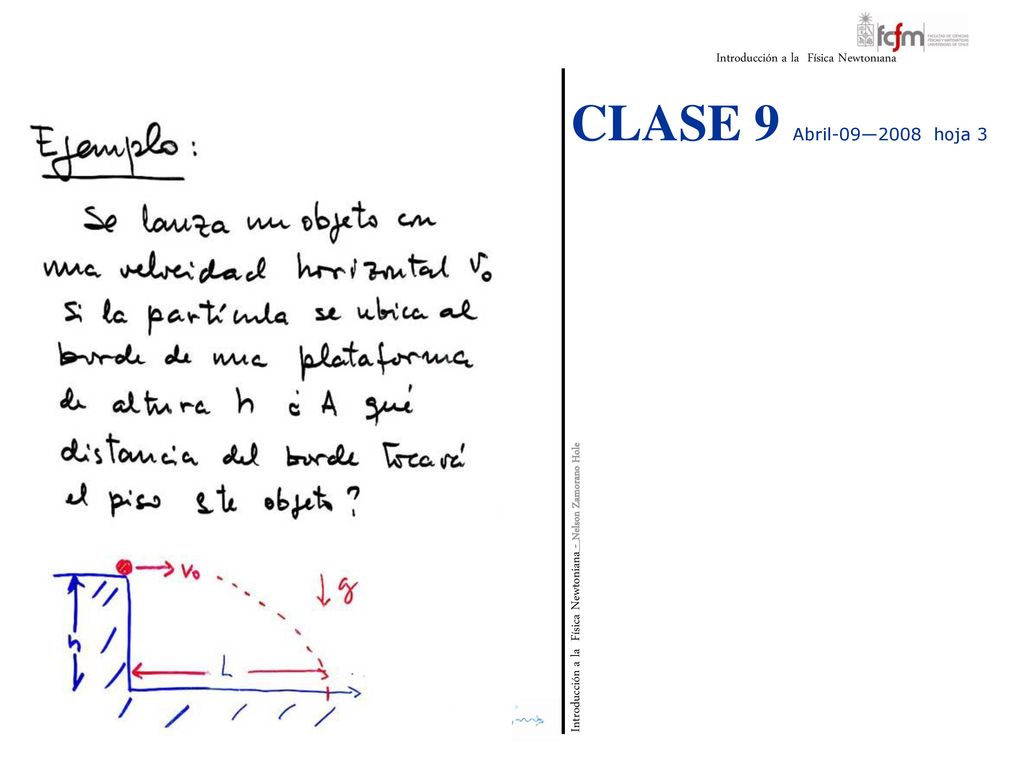 fcfm
FACULTAD DE CIENCIAS
FÍSICAS Y MATEMÁTICAS
UNIVERSIDAD DE CHILE
Introducción a la Física Newtoniana
CLASE 9 Abril-09—2008 hoja 3
Ejemplo:
Se lanza un objeto con
una velocidad horizontal v₀
Si la partícula se ubica al
borde de una plataforma
de altura h ¿ A qué
distancia del borde tocará
el piso este objeto?
v₀
g
h
L
Introducción a la Física Newtoniana - Nelson Zamorano Hole